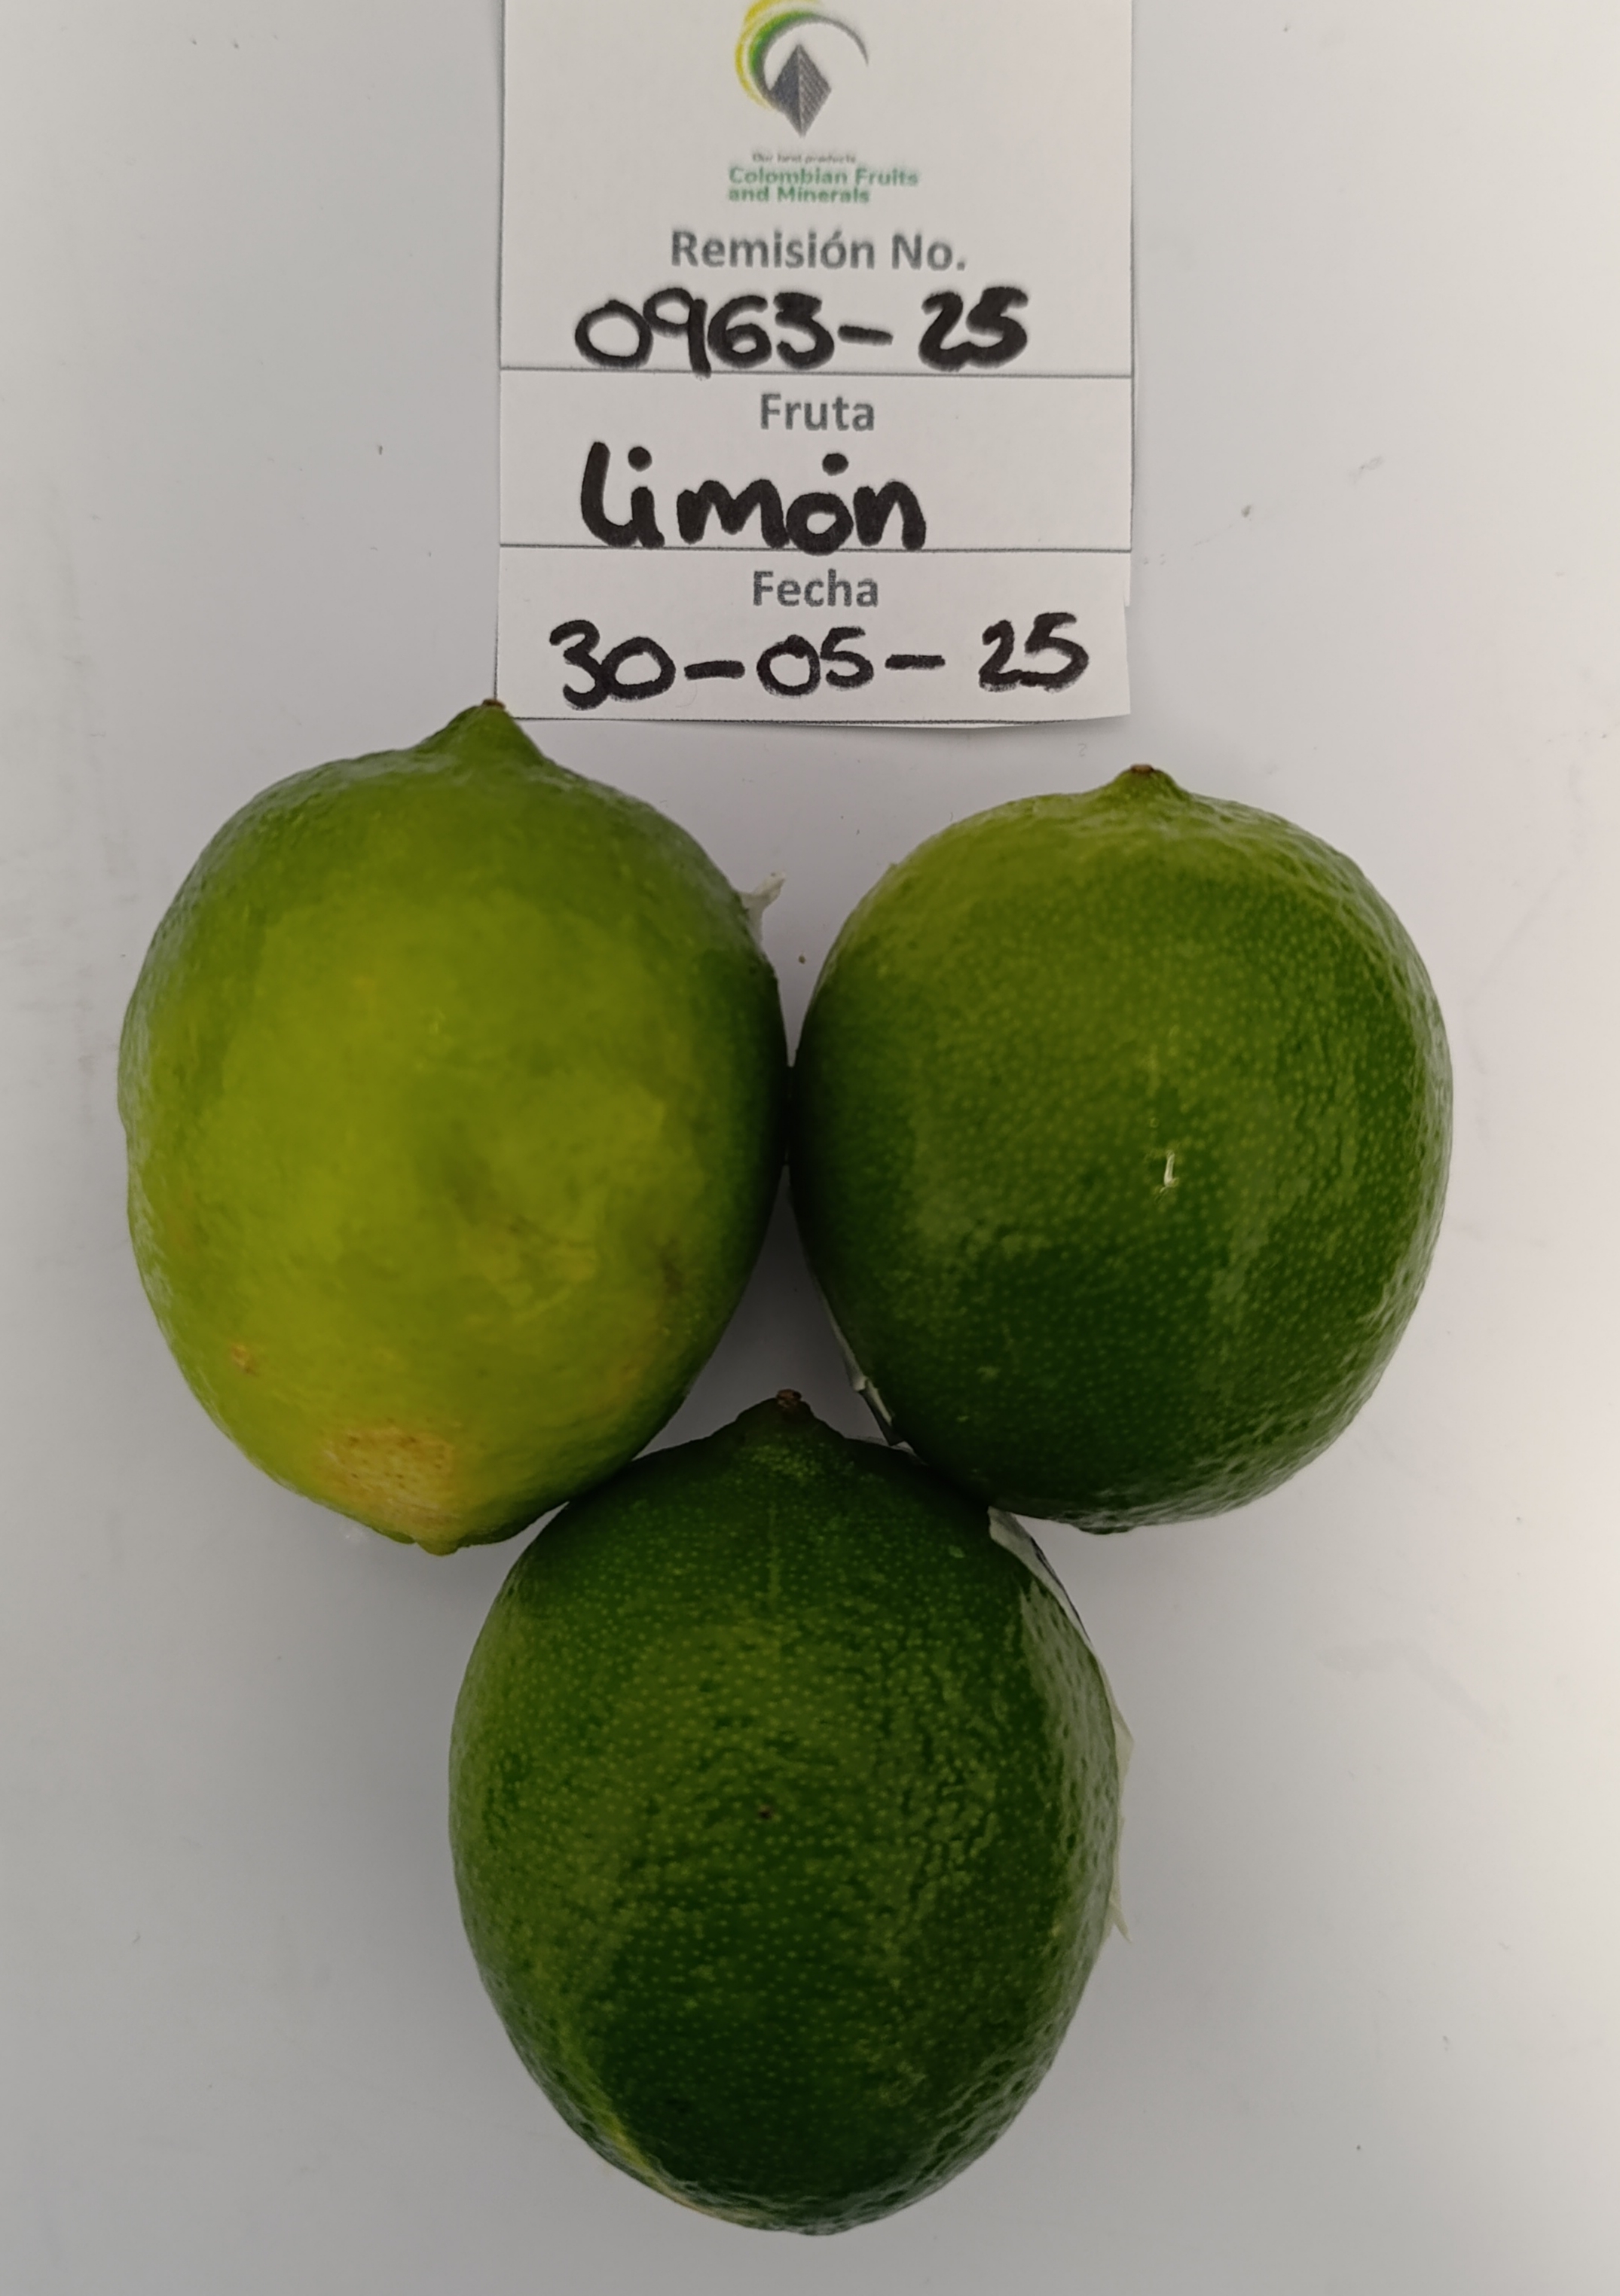 Our best products
Colombian Fruits
and Minerals
Remisión No.
0963-25
Fruta
limón
Fecha
30-05-25